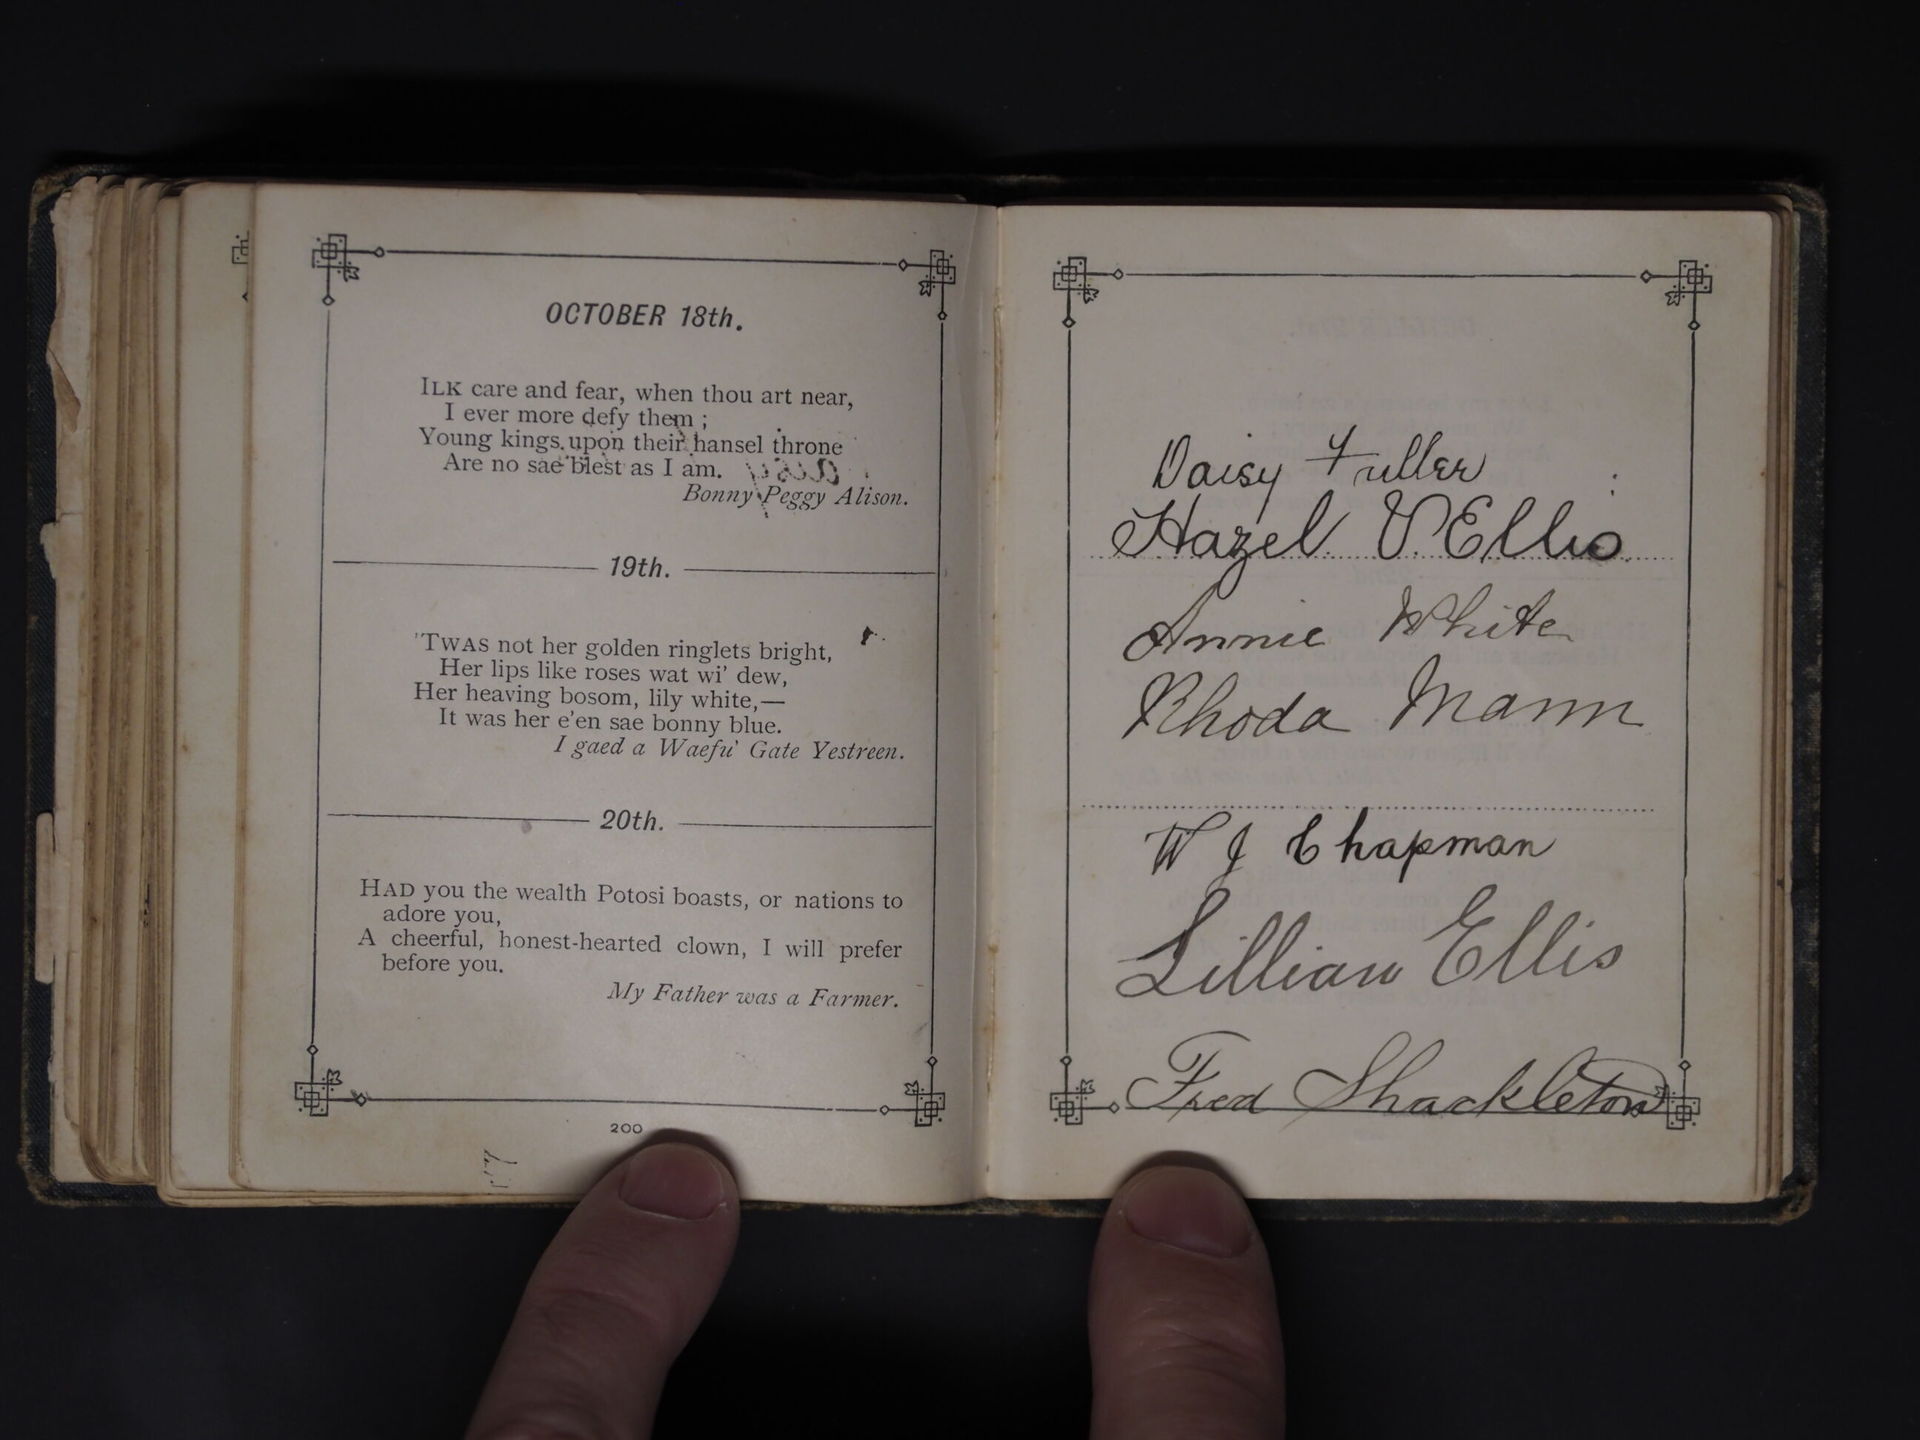 OCTOBER 18th.
ILK care and fear, when thou art near,
I ever more defy them ;
Young kings upon their hansel throne
Are no sae blest as I am.
Bonny Peggy Alison.
19th.
'TWAS not her golden ringlets bright,
Her lips like roses wat wi' dew,
Her heaving bosom, lily white,—
It was her e'en sae bonny blue.
I gaed a Waefu' Gate Yestreen.
20th.
HAD you the wealth Potosi boasts, or nations to
adore you,
A cheerful, honest-hearted clown, I will prefer
before you.
My Father was a Farmer.
200
Daisy Fuller
Hazel V. Ellis
Annie White
Rhoda Mann
W J Chapman
Lillian Ellis
Fred Shackleton